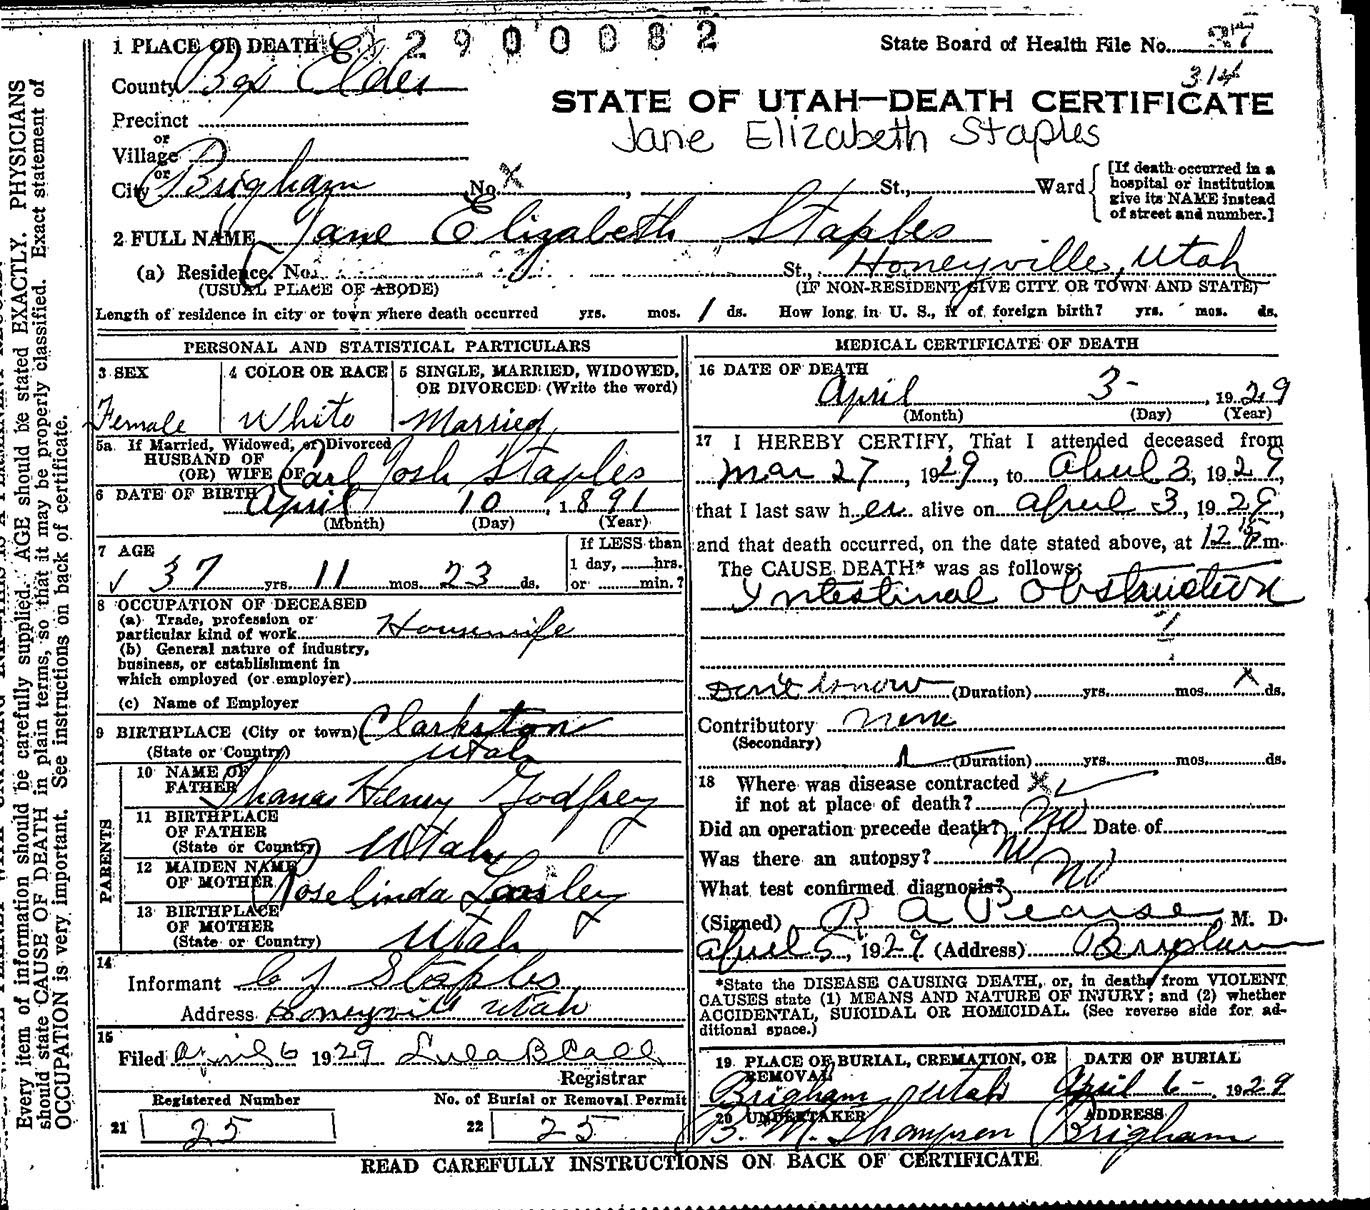 1 PLACE OF DEATH
2900082
State Board of Health File No. 37
314
County Box Elder
STATE OF UTAH—DEATH CERTIFICATE
Precinct
Jane Elizabeth Staples
or
Village
or
City Brigham No. x , St., Ward
[If death occurred in a hospital or institution give its NAME instead of street and number.]
2 FULL NAME Jane Elizabeth Staples
(a) Residence. No. St., Honeyville, Utah
(USUAL PLACE OF ABODE) (IF NON-RESIDENT GIVE CITY OR TOWN AND STATE)
Length of residence in city or town where death occurred yrs. mos. 1 ds. How long in U. S., if of foreign birth? yrs. mos. ds.
PERSONAL AND STATISTICAL PARTICULARS
3 SEX Female
4 COLOR OR RACE White
5 SINGLE, MARRIED, WIDOWED, OR DIVORCED (Write the word) Married
5a If Married, Widowed, or Divorced
HUSBAND OF
(OR) WIFE OF Carl Josh Staples
6 DATE OF BIRTH April 10, 1891
(Month) (Day) (Year)
7 AGE
37 yrs. 11 mos. 23 ds.
If LESS than 1 day, hrs. or min.?
8 OCCUPATION OF DECEASED
(a) Trade, profession or particular kind of work Housewife
(b) General nature of industry, business, or establishment in which employed (or employer)
(c) Name of Employer
9 BIRTHPLACE (City or town) Clarkston
(State or Country) Utah
PARENTS
10 NAME OF FATHER Thomas Henry Godfrey
11 BIRTHPLACE OF FATHER (State or Country) Utah
12 MAIDEN NAME OF MOTHER Roselinda
13 BIRTHPLACE OF MOTHER (State or Country) Utah
14
Informant C J Staples
Address Honeyville Utah
15
Filed April 6 1929 Lula B Call
Registrar
Registered Number
21 25
No. of Burial or Removal Permit
22 25
MEDICAL CERTIFICATE OF DEATH
16 DATE OF DEATH
April 3- , 1929
(Month) (Day) (Year)
17 I HEREBY CERTIFY, That I attended deceased from
Mar 27, 1929, to April 3, 1929,
that I last saw her alive on April 3, 1929,
and that death occurred, on the date stated above, at 12 m.
The CAUSE DEATH* was as follows:
Intestinal Obstruction
Don't know (Duration) yrs. mos. x ds.
Contributory none
(Secondary)
(Duration) yrs. mos. ds.
18 Where was disease contracted
if not at place of death?
Did an operation precede death? No Date of
Was there an autopsy? No
What test confirmed diagnosis? No
(Signed) R A Pearse, M. D.
April 5, 1929 (Address) Brigham
*State the DISEASE CAUSING DEATH, or, in deaths from VIOLENT
CAUSES state (1) MEANS AND NATURE OF INJURY; and (2) whether
ACCIDENTAL, SUICIDAL OR HOMICIDAL. (See reverse side for ad-
ditional space.)
19 PLACE OF BURIAL, CREMATION, OR REMOVAL
Brigham Utah
DATE OF BURIAL
April 6- 1929
20 UNDERTAKER
B. M. Thompson
ADDRESS
Brigham
READ CAREFULLY INSTRUCTIONS ON BACK OF CERTIFICATE
Every item of information should be carefully supplied. AGE should be stated EXACTLY. PHYSICIANS
should state CAUSE OF DEATH in plain terms, so that it may be properly classified. Exact statement of
OCCUPATION is very important. See instructions on back of certificate.